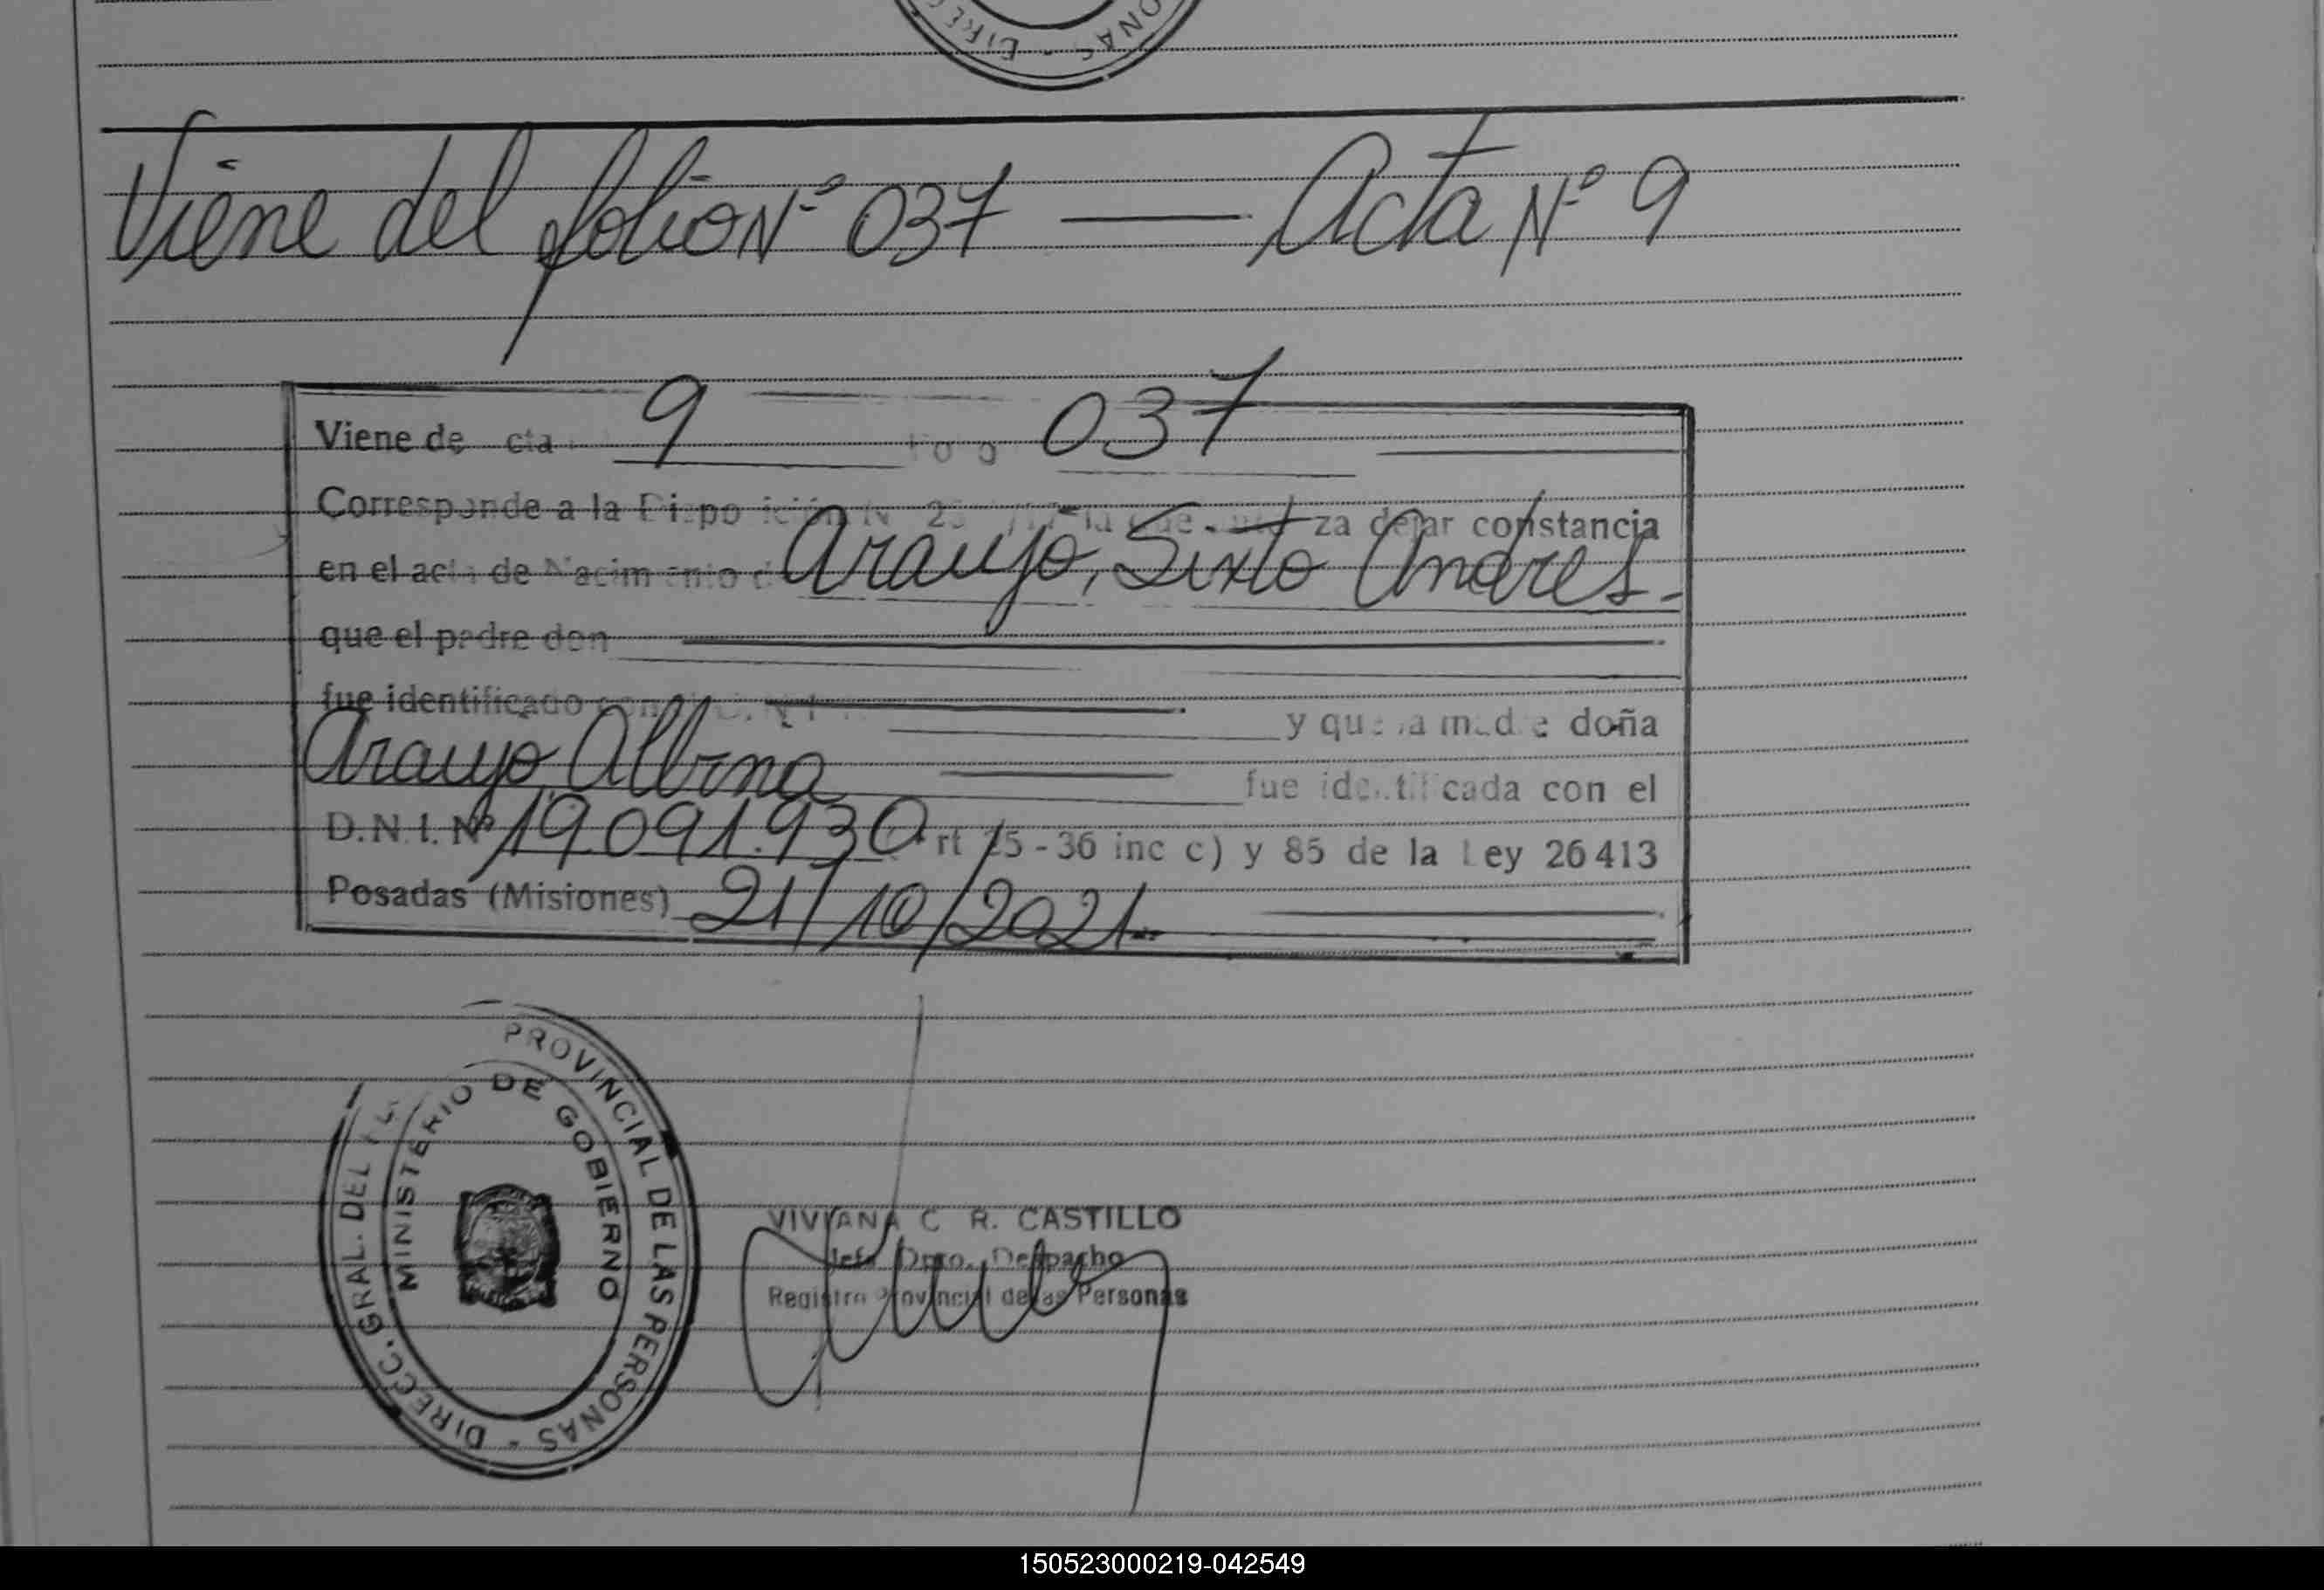 Viene del folio Nº 037 — Acta Nº 9
Viene de cta 9 037
Corresponde a la za dejar constancia
en el acta de Nacimiento d Araujo, Sixto Andres.-
que el padre don
fue identificado con y que la madre doña
Araujo, Albina fue identificada con el
D.N.I. Nº 19.091.930 rt 25-36 inc c) y 85 de la Ley 26413
Posadas (Misiones) 21/10/2021.-
DIRECC. GRAL. DEL PROVINCIAL DE LAS PERSONAS -
MINISTERIO DE GOBIERNO
VIVIANA C R. CASTILLO
Jefa Dpto. Despacho
Registro Provincial de las Personas
150523000219-042549